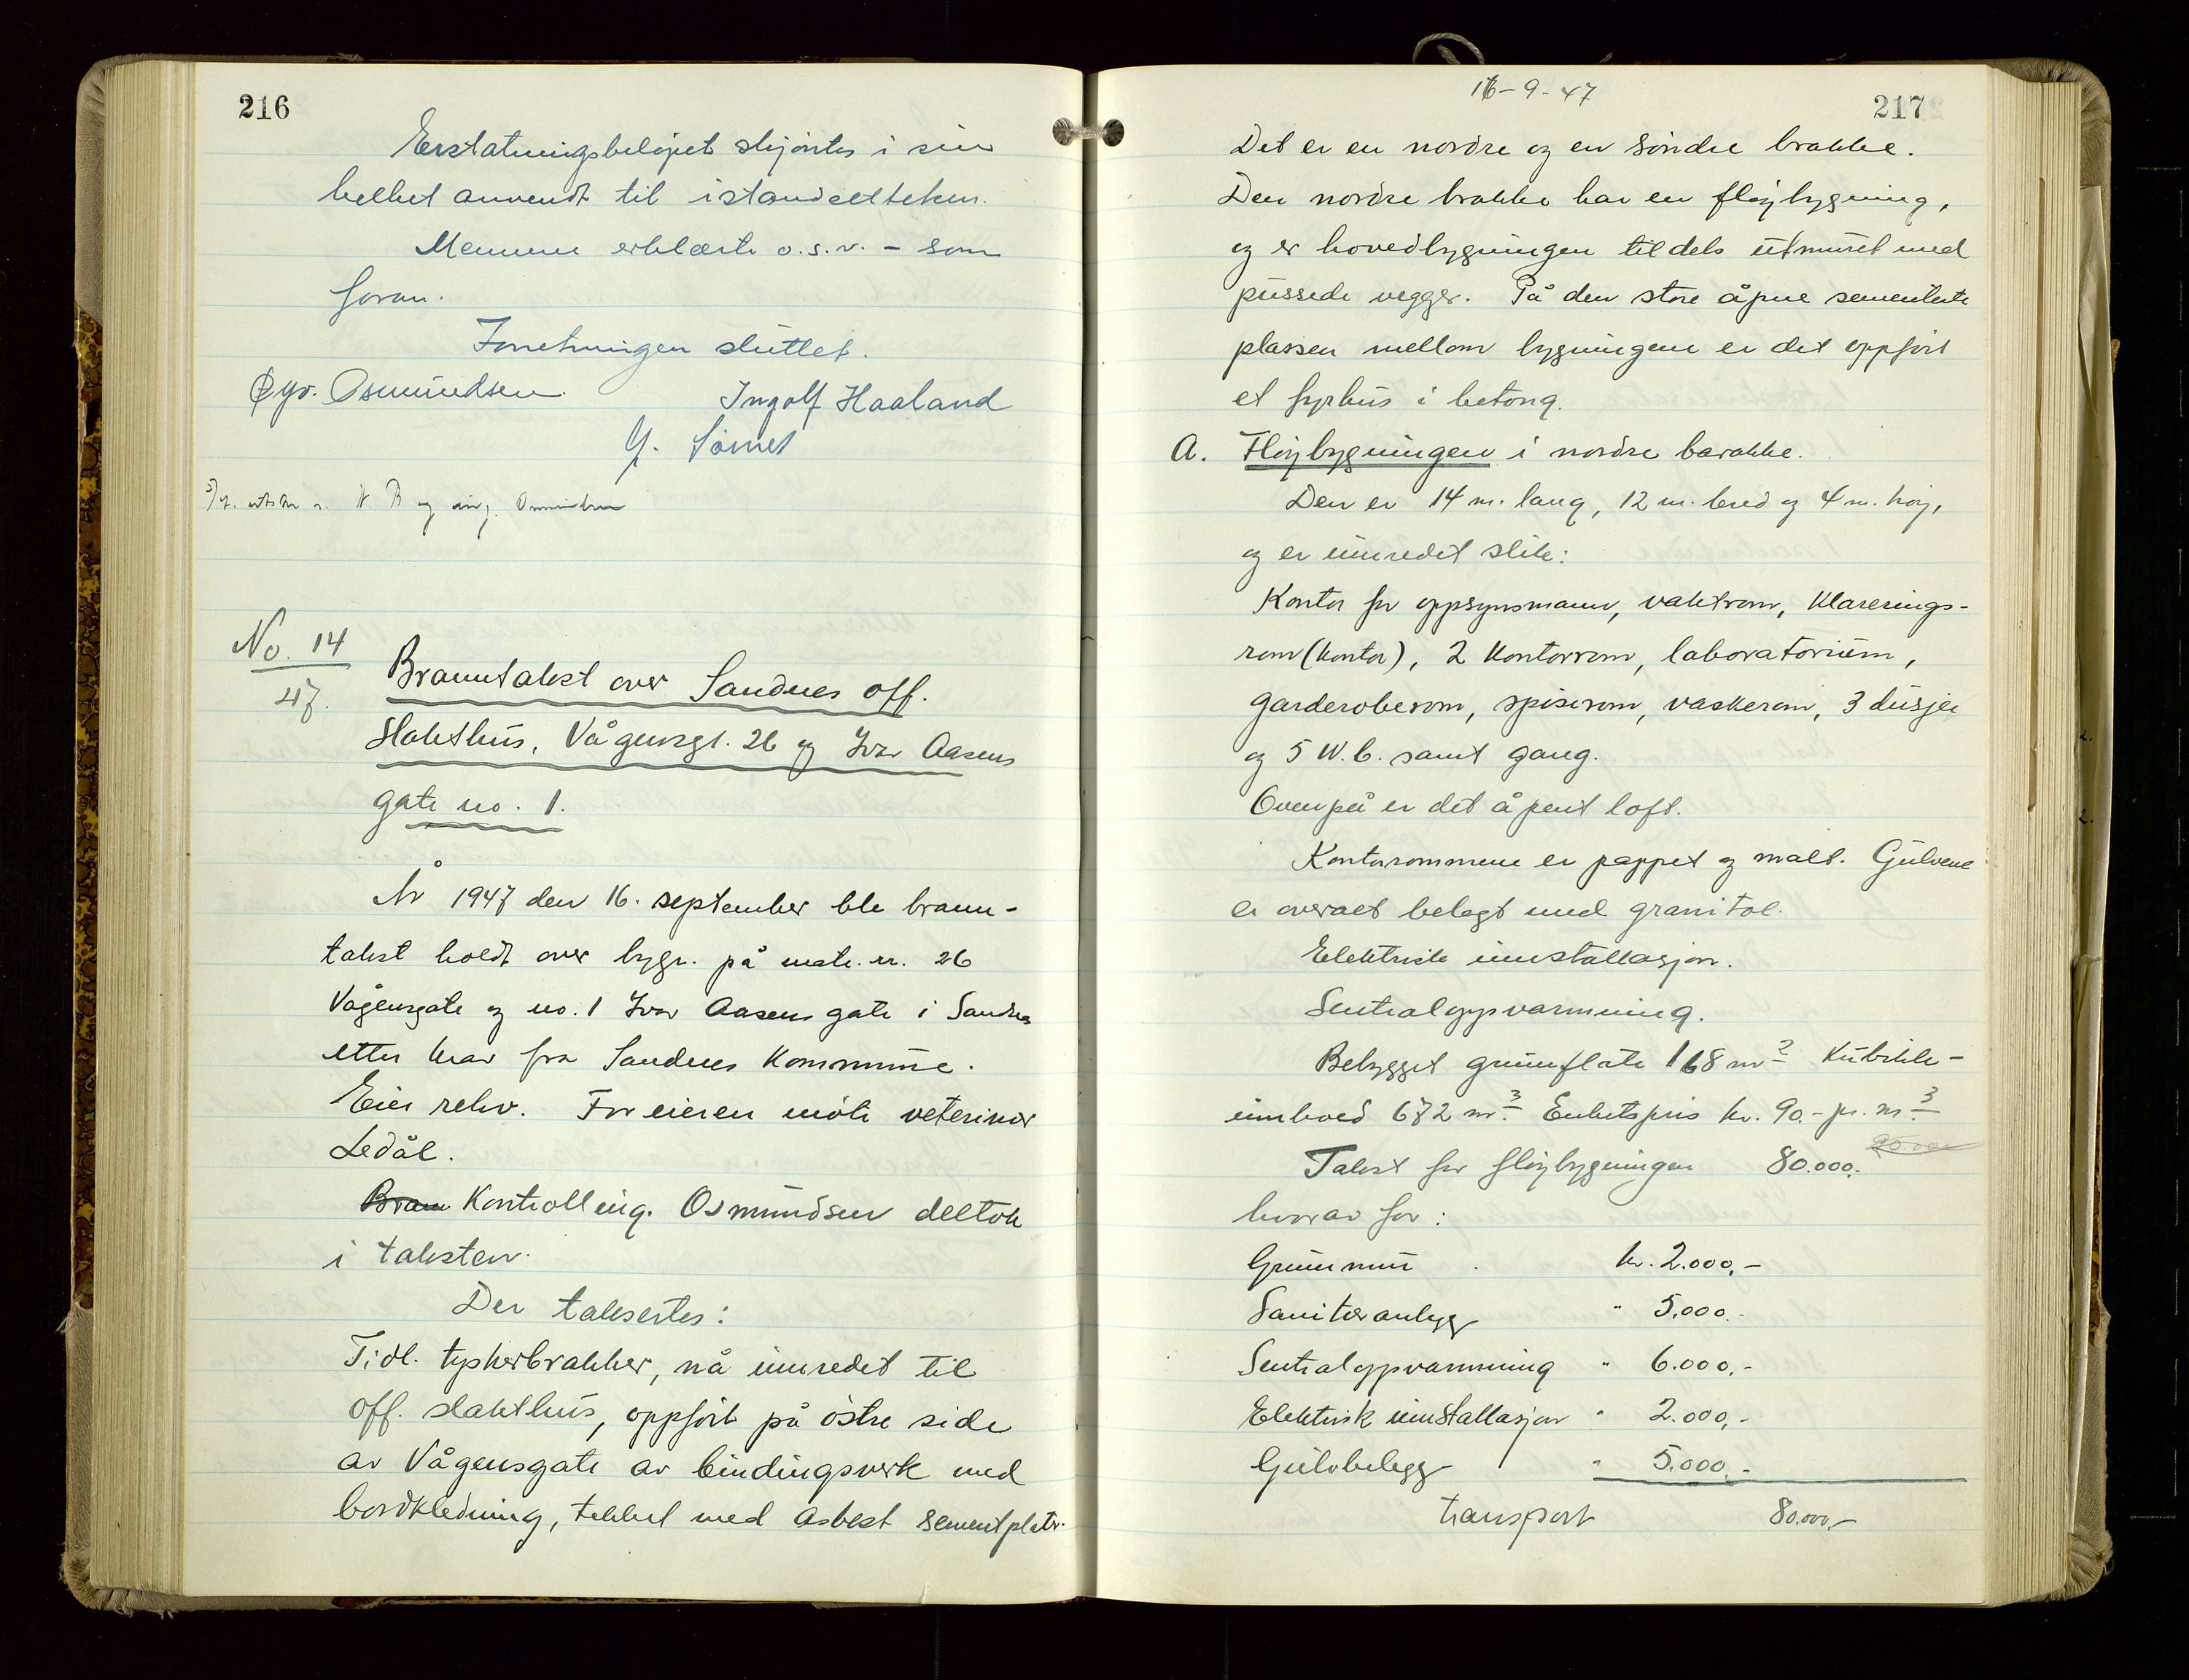 216
Erstatningsbeløpet skjøntes i sin
helhet anvendt til istandsettelsen.
Mennene erklærte o.s.v. - som
foran.
Forretningen sluttet.
Osmundsen Ingolf Haaland
No. 14
47.
Branntakst over Sandnes off.
slakthus, Vågensgt. 26 og Ivar Aasens
gate no. 1.
År 1947 den 16. september ble brann-
takst holdt over bygn. på matr. nr. 26
Vågensgate og no. 1 Ivar Aasens gate i Sandnes
etter krav fra Sandnes Kommune.
Eier rekv. For eieren møtte veterinær
Ledål.
Bran Kontrolling. Osmundsen deltok
i taksten.
Der taksertes:
Tidl. tyskerbrakker, nå innredet til
off. slakthus, oppført på østre side
av Vågensgate av bindingsverk med
bordkledning, tekket med asbest sementplater.
16-9-47
217
Det er en nordre og en søndre brakke.
Den nordre brakke har en fløybygning,
og er hovedbygningen tildels utmuret med
pussede vegger. På den store åpne sementerte
plassen mellom bygningene er det oppført
et fyrhus i betong.
A. Fløybygningen i nordre barakke.
Den er 14 m. lang, 12 m. bred og 4 m. høy,
og er innredet slik:
Kontor for oppsynsmann, vaktrom, klarerings-
rom (kontor), 2 kontorrom, laboratorium,
garderoberom, spiserom, vaskerom, 3 dusjer
og 5 W.C. samt gang.
Ovenpå er det åpent loft.
Kontorrommene er pappet og malt. Gulvene
er overalt belagt med granitol.
Elektrisk innstallasjon.
Sentraloppvarmning.
Bebygget grunnflate 168 m² Kubikk-
innhold 672 m³. Enhetspris kr. 90.- pr. m³
Takst for fløybygningen 80.000.- 90.000
hvorav for:
Grunnmur kr. 2.000,-
Sanitæranlegg " 5.000.-
Sentraloppvarmning " 6.000,-
Elektrisk innstallasjon " 2.000,-
Gulvbelegg " 5.000,-
transport 80.000,-